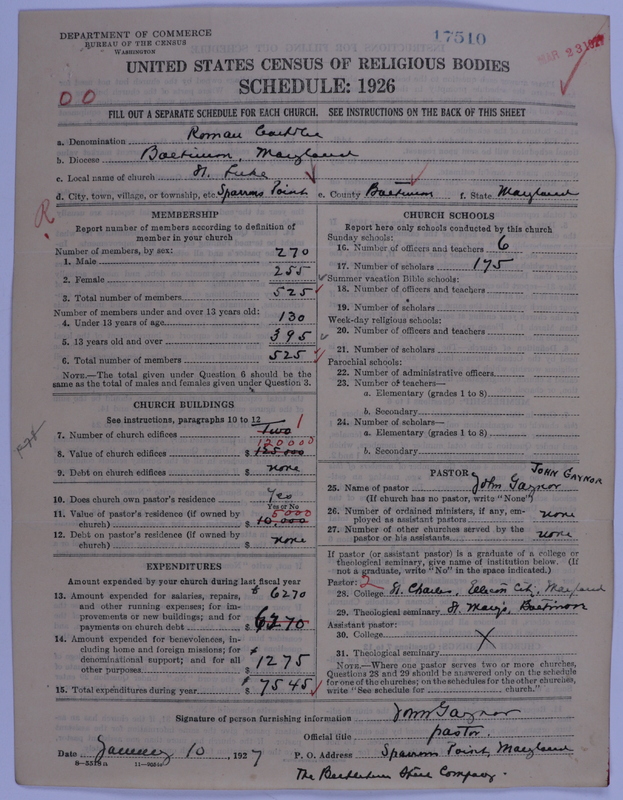 DEPARTMENT OF COMMERCE
BUREAU OF THE CENSUS
WASHINGTON
17510
MAR 23 1927
UNITED STATES CENSUS OF RELIGIOUS BODIES
SCHEDULE: 1926
00
FILL OUT A SEPARATE SCHEDULE FOR EACH CHURCH. SEE INSTRUCTIONS ON THE BACK OF THIS SHEET
a. Denomination Roman Catholic
b. Diocese Baltimore, Maryland
c. Local name of church St. Luke
d. City, town, village, or township, etc. Sparrows Point e. County Baltimore f. State Maryland
R
MEMBERSHIP
Report number of members according to definition of
member in your church
Number of members, by sex:
1. Male 270
2. Female 255
3. Total number of members 525
Number of members under and over 13 years old:
4. Under 13 years of age 130
5. 13 years old and over 395
6. Total number of members 525
NOTE.—The total given under Question 6 should be the
same as the total of males and females given under Question 3.
CHURCH BUILDINGS
See instructions, paragraphs 10 to 12
7. Number of church edifices Two 1
120000
8. Value of church edifices $ 125000
9. Debt on church edifices $ none
10. Does church own pastor's residence Yes
Yes or No
11. Value of pastor's residence (if owned by 5000
church) $ 10,000
12. Debt on pastor's residence (if owned by
church) $ none
EXPENDITURES
Amount expended by your church during last fiscal year
13. Amount expended for salaries, repairs, $ 6270
and other running expenses; for im-
provements or new buildings; and for
payments on church debt $ 6270
14. Amount expended for benevolences, in-
cluding home and foreign missions; for
denominational support; and for all
other purposes $ 1275
15. Total expenditures during year $ 7545
CHURCH SCHOOLS
Report here only schools conducted by this church
Sunday schools:
16. Number of officers and teachers 6
17. Number of scholars 175
Summer vacation Bible schools:
18. Number of officers and teachers
19. Number of scholars
Week-day religious schools:
20. Number of officers and teachers
21. Number of scholars
Parochial schools:
22. Number of administrative officers
23. Number of teachers—
a. Elementary (grades 1 to 8)
b. Secondary
24. Number of scholars—
a. Elementary (grades 1 to 8)
b. Secondary
PASTOR JOHN GAYNOR
25. Name of pastor John Gaynor
(If church has no pastor, write "None")
26. Number of ordained ministers, if any, em-
ployed as assistant pastors none
27. Number of other churches served by the
pastor or his assistants none
If pastor (or assistant pastor) is a graduate of a college or
theological seminary, give name of institution below. (If
not a graduate, write "No" in the space indicated.)
Pastor: 2
28. College St. Charles, Ellicott City, Maryland
29. Theological seminary St. Mary's, Baltimore
Assistant pastor:
30. College X
31. Theological seminary
NOTE.—Where one pastor serves two or more churches,
Questions 28 and 29 should be answered only on the schedule
for one of the churches; on the schedules for the other churches,
write "See schedule for church."
Signature of person furnishing information John Gaynor
Official title pastor.
Date January 10, 1927 P. O. Address Sparrows Point, Maryland
The Bethlehem Steel Company.